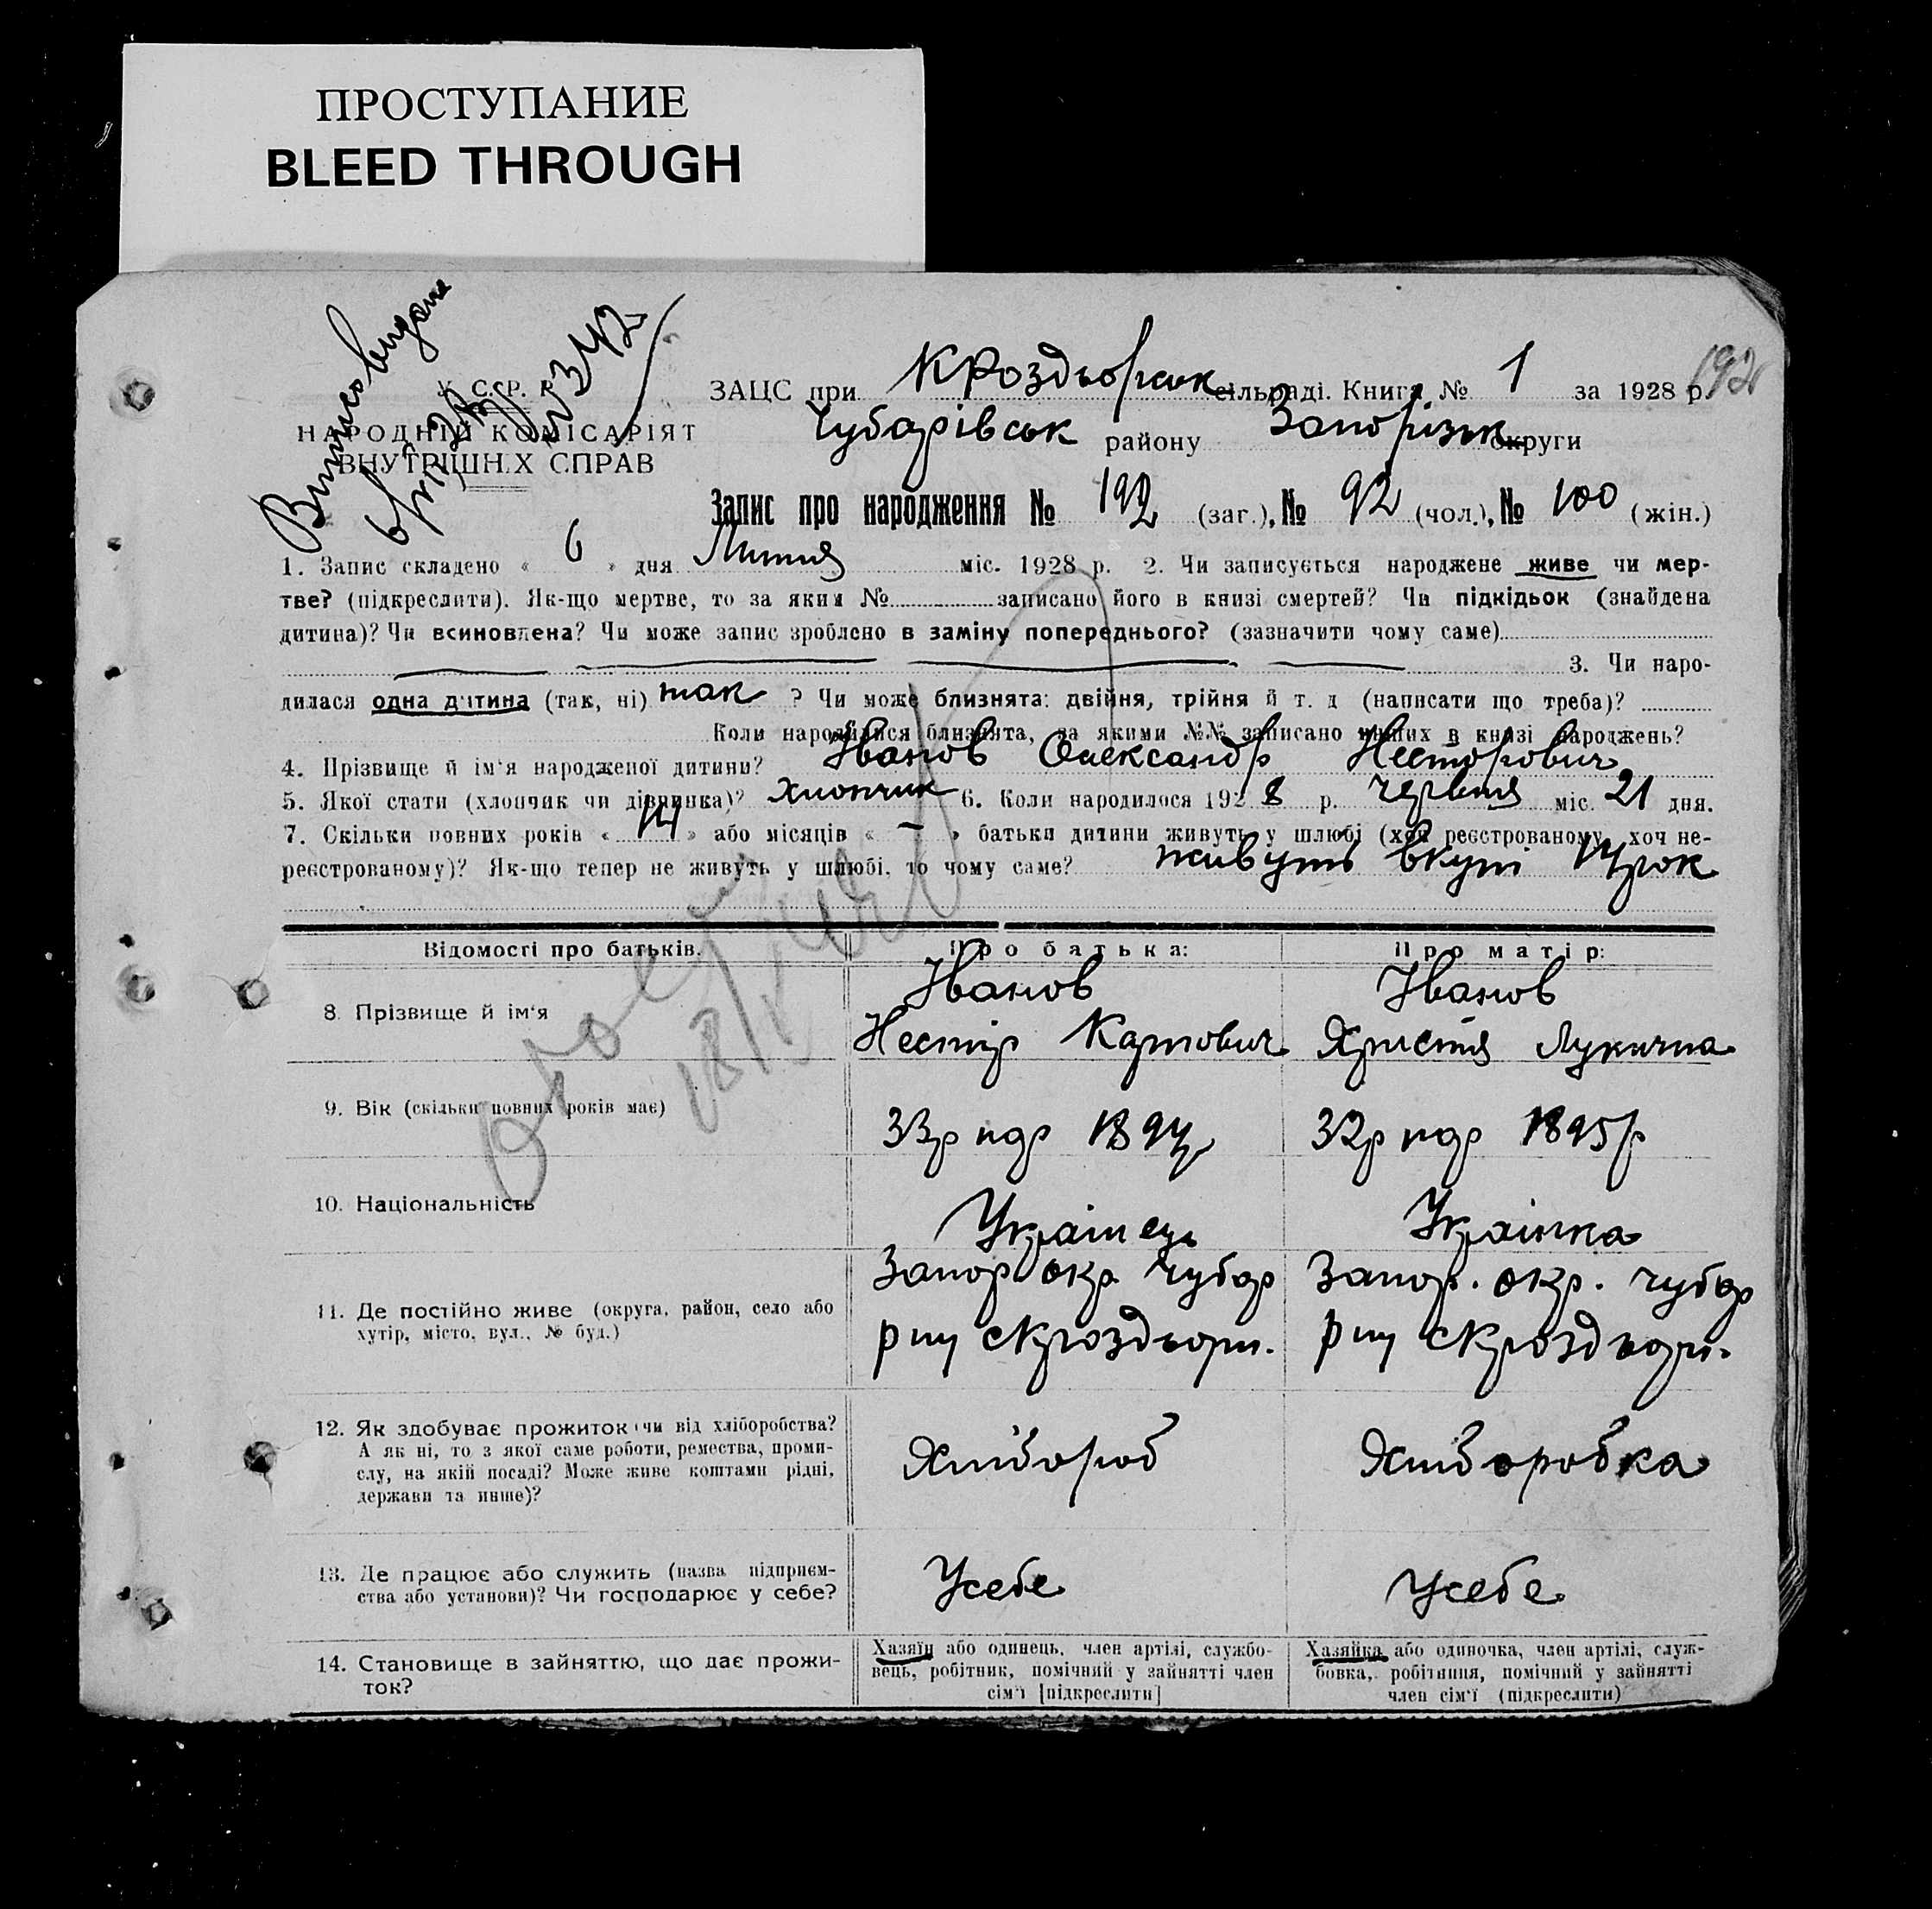 ПРОСТУПАНИЕ
BLEED THROUGH
Виписо видана
№ 342
192
У. С. Р. Р.
НАРОДНІЙ КОМІСАРІЯТ
ВНУТРІШНІХ СПРАВ
ЗАЦС при КРоздьорськ сільраді. Книга № 1 за 1928 р.
Чубарівськ району Запорізьк округи
Запис про народження № 192 (заг.), № 92 (чол.), № 100 (жін.)
1. Запис складено « 6 » дня Липня міс. 1928 р. 2. Чи записується народжене живе чи мер-
тве? (підкреслити). Як-що мертве, то за яким № записано його в книзі смертей? Чи підкідьок (знайдена
дитина)? Чи всиновлена? Чи може запис зроблено в заміну попереднього? (зазначити чому саме)
3. Чи наро-
дилася одна дитина (так, ні) так ? Чи може близнята: двійня, трійня й т. д (написати що треба)?
Коли народилися близнята, за якими №№ записано инших в книзі народжень?
4. Прізвище й ім'я народженої дитини? Іванов Олександр Несторович
5. Якої стати (хлопчик чи дівчинка)? Хлопчик 6. Коли народилося 1928 р. червня міс. 21 дня.
7. Скільки повних років « 14 » або місяців « — » батьки дитини живуть у шлюбі (хоч реєстрованому, хоч не-
реєстрованому)? Як-що тепер не живуть у шлюбі, то чому саме? живуть вкупі
Відомості про батьків. Про батька: Про матір:
8. Прізвище й ім'я Іванов Іванов
Нестір Карпович Христя Лукична
9. Вік (скільки повних років має) 33р 32р 1895р
10. Національність Українець Українка
11. Де постійно живе (округа, район, село або Запор окр. Чубар Запор. окр. Чубар
хутір, місто, вул., № буд.) р ну с Кроздьори. р ну с Кроздьори.
12. Як здобуває прожиток чи від хліборобства?
А як ні, то з якої саме роботи, ремества, проми- Хлібороб Хліборобка
слу, на якій посаді? Може живе коштами рідні,
держави та инше)?
13. Де працює або служить (назва підприєм- Усебе Усебе
ства або установи)? Чи господарює у себе?
14. Становище в зайняттю, що дає прожи-
ток?
Хазяїн або одинець, член артілі, службо-
вець, робітник, помічний у зайнятті член
сім'ї [підкреслити]
Хазяйка або одиночка, член артілі, служ-
бовка, робітниця, помічний у зайнятті
член сім'ї (підкреслити)